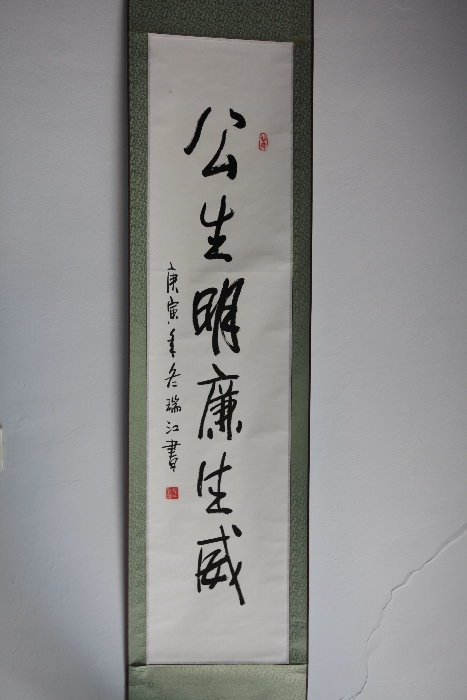 公生明廉生威
庚寅年冬瑞江書